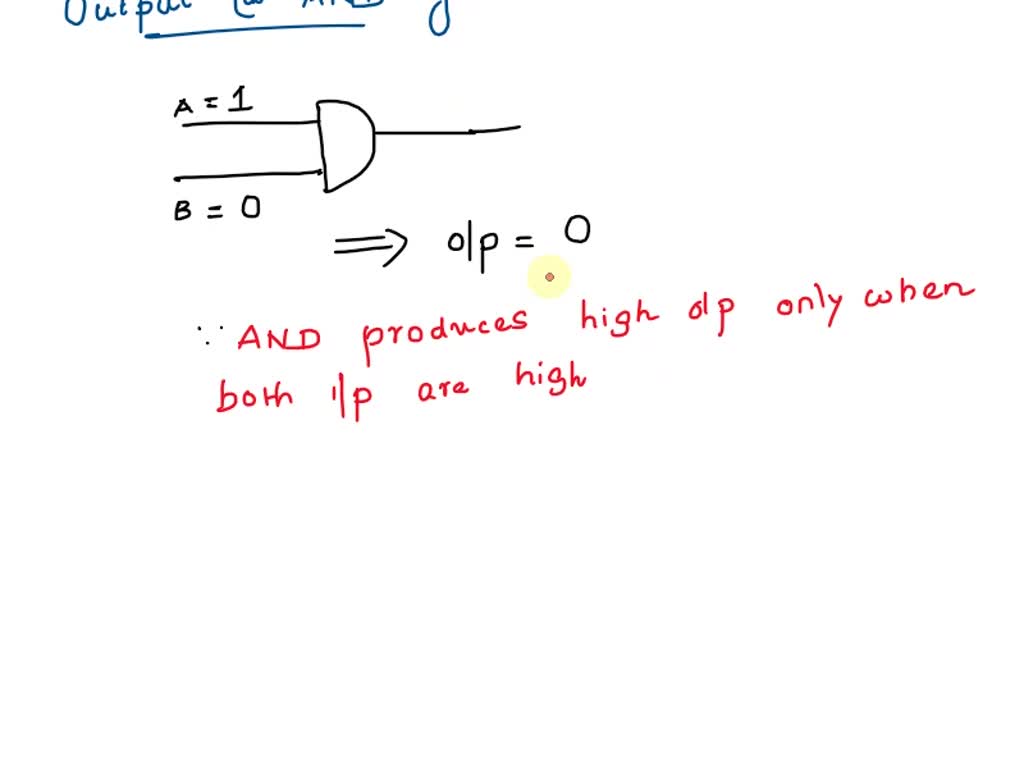 Output AND
A = 1
B = 0
⟹ o/p = 0
∵ AND produces high o/p only when
both i/p are high